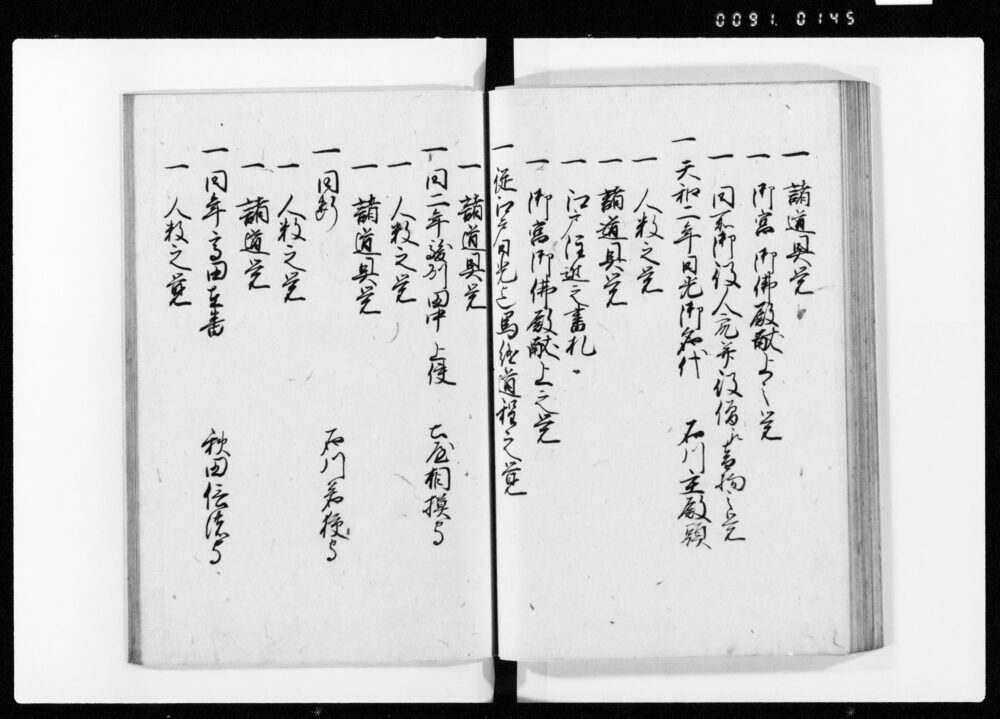 0091.0145
一 諸道具覚
一 御宮 御佛殿献上之覚
一 同所御役人衆并役僧 音物之覚
一 天和二年日光御名代 石川主殿頭
一 人数之覚
一 諸道具覚
一 江戸注進之書札
一 御宮御佛殿献上之覚
一 従江戸日光迄馬継道程之覚
一 諸道具覚
一 同二年駿列田中上使 土屋相摸守
一 人数之覚
一 諸道具覚
一 同断 石川若狭守
一 人数之覚
一 諸道覚
一 同年高田在番 秋田信濃守
一 人数之覚